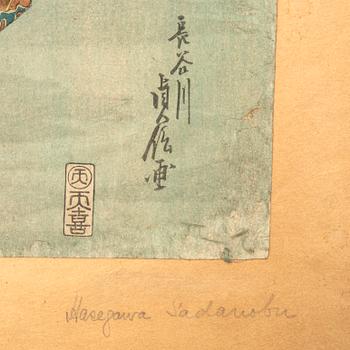 長谷川
貞信画
天
天喜
Hasegawa Sadanobu